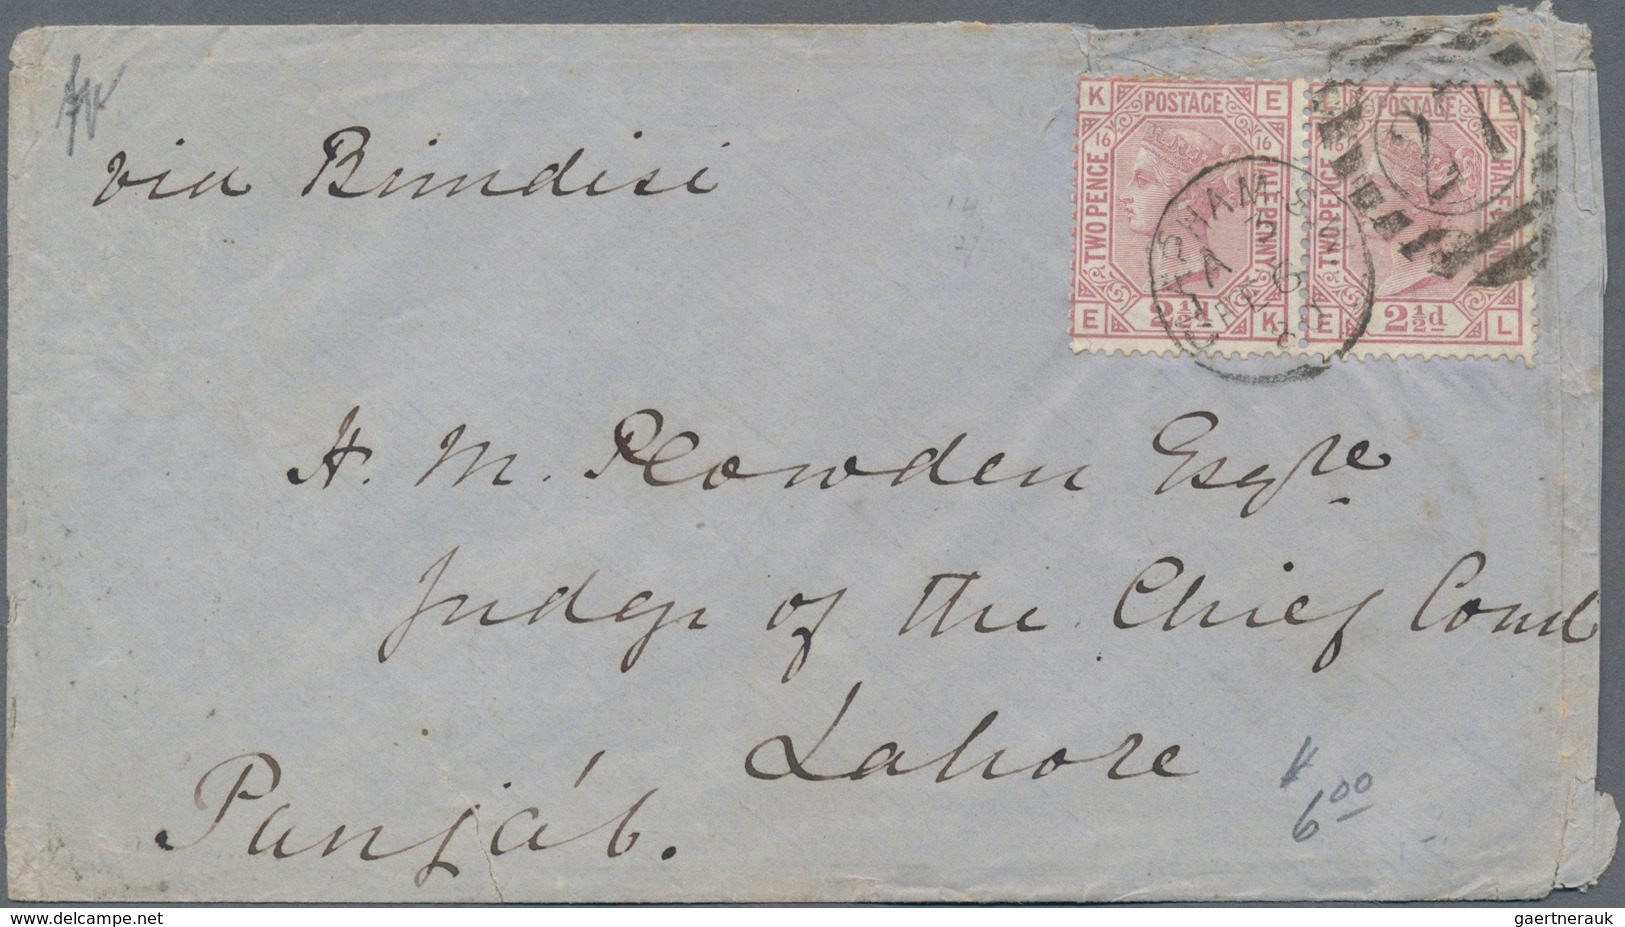 via Brindisi
K POSTAGE E
16 16
TWO PENCE
HALFPENNY
E 2½d K
POSTAGE E
16
TWO PENCE
HALF
E 2½d L
FE 6
80
H. M. Plowden Esqre
Judge of the Chief Court
Lahore
Panjáb.
6 00
© www.delcampe.net
gaertnerauk